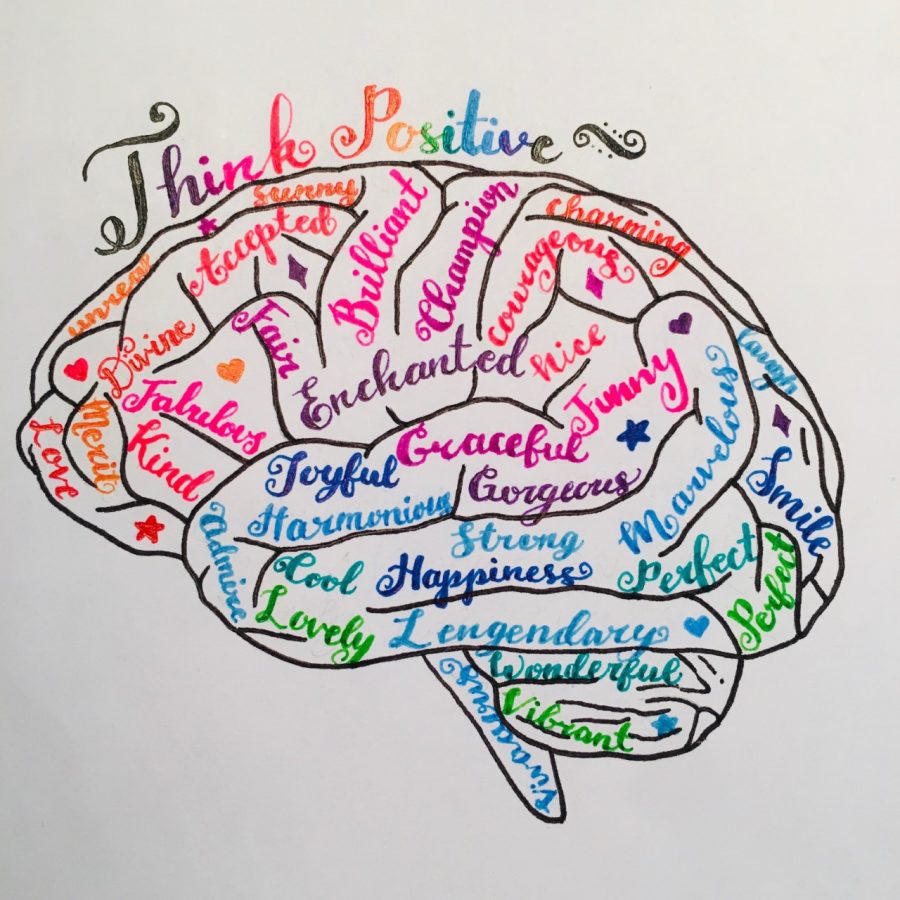 Think Positive
sunny
Accepted
Brilliant
Champion
charming
courageous
unreal
Divine
Fair
Enchanted
Nice
Funny
laugh
Fabulous
Merit
Kind
Love
Graceful
Marvelous
Joyful
Gorgeous
Smile
Harmonious
Admire
Strong
Cool
Happiness
Perfect
Perfect
Lovely
Lengendary
Wonderful
Vibrant